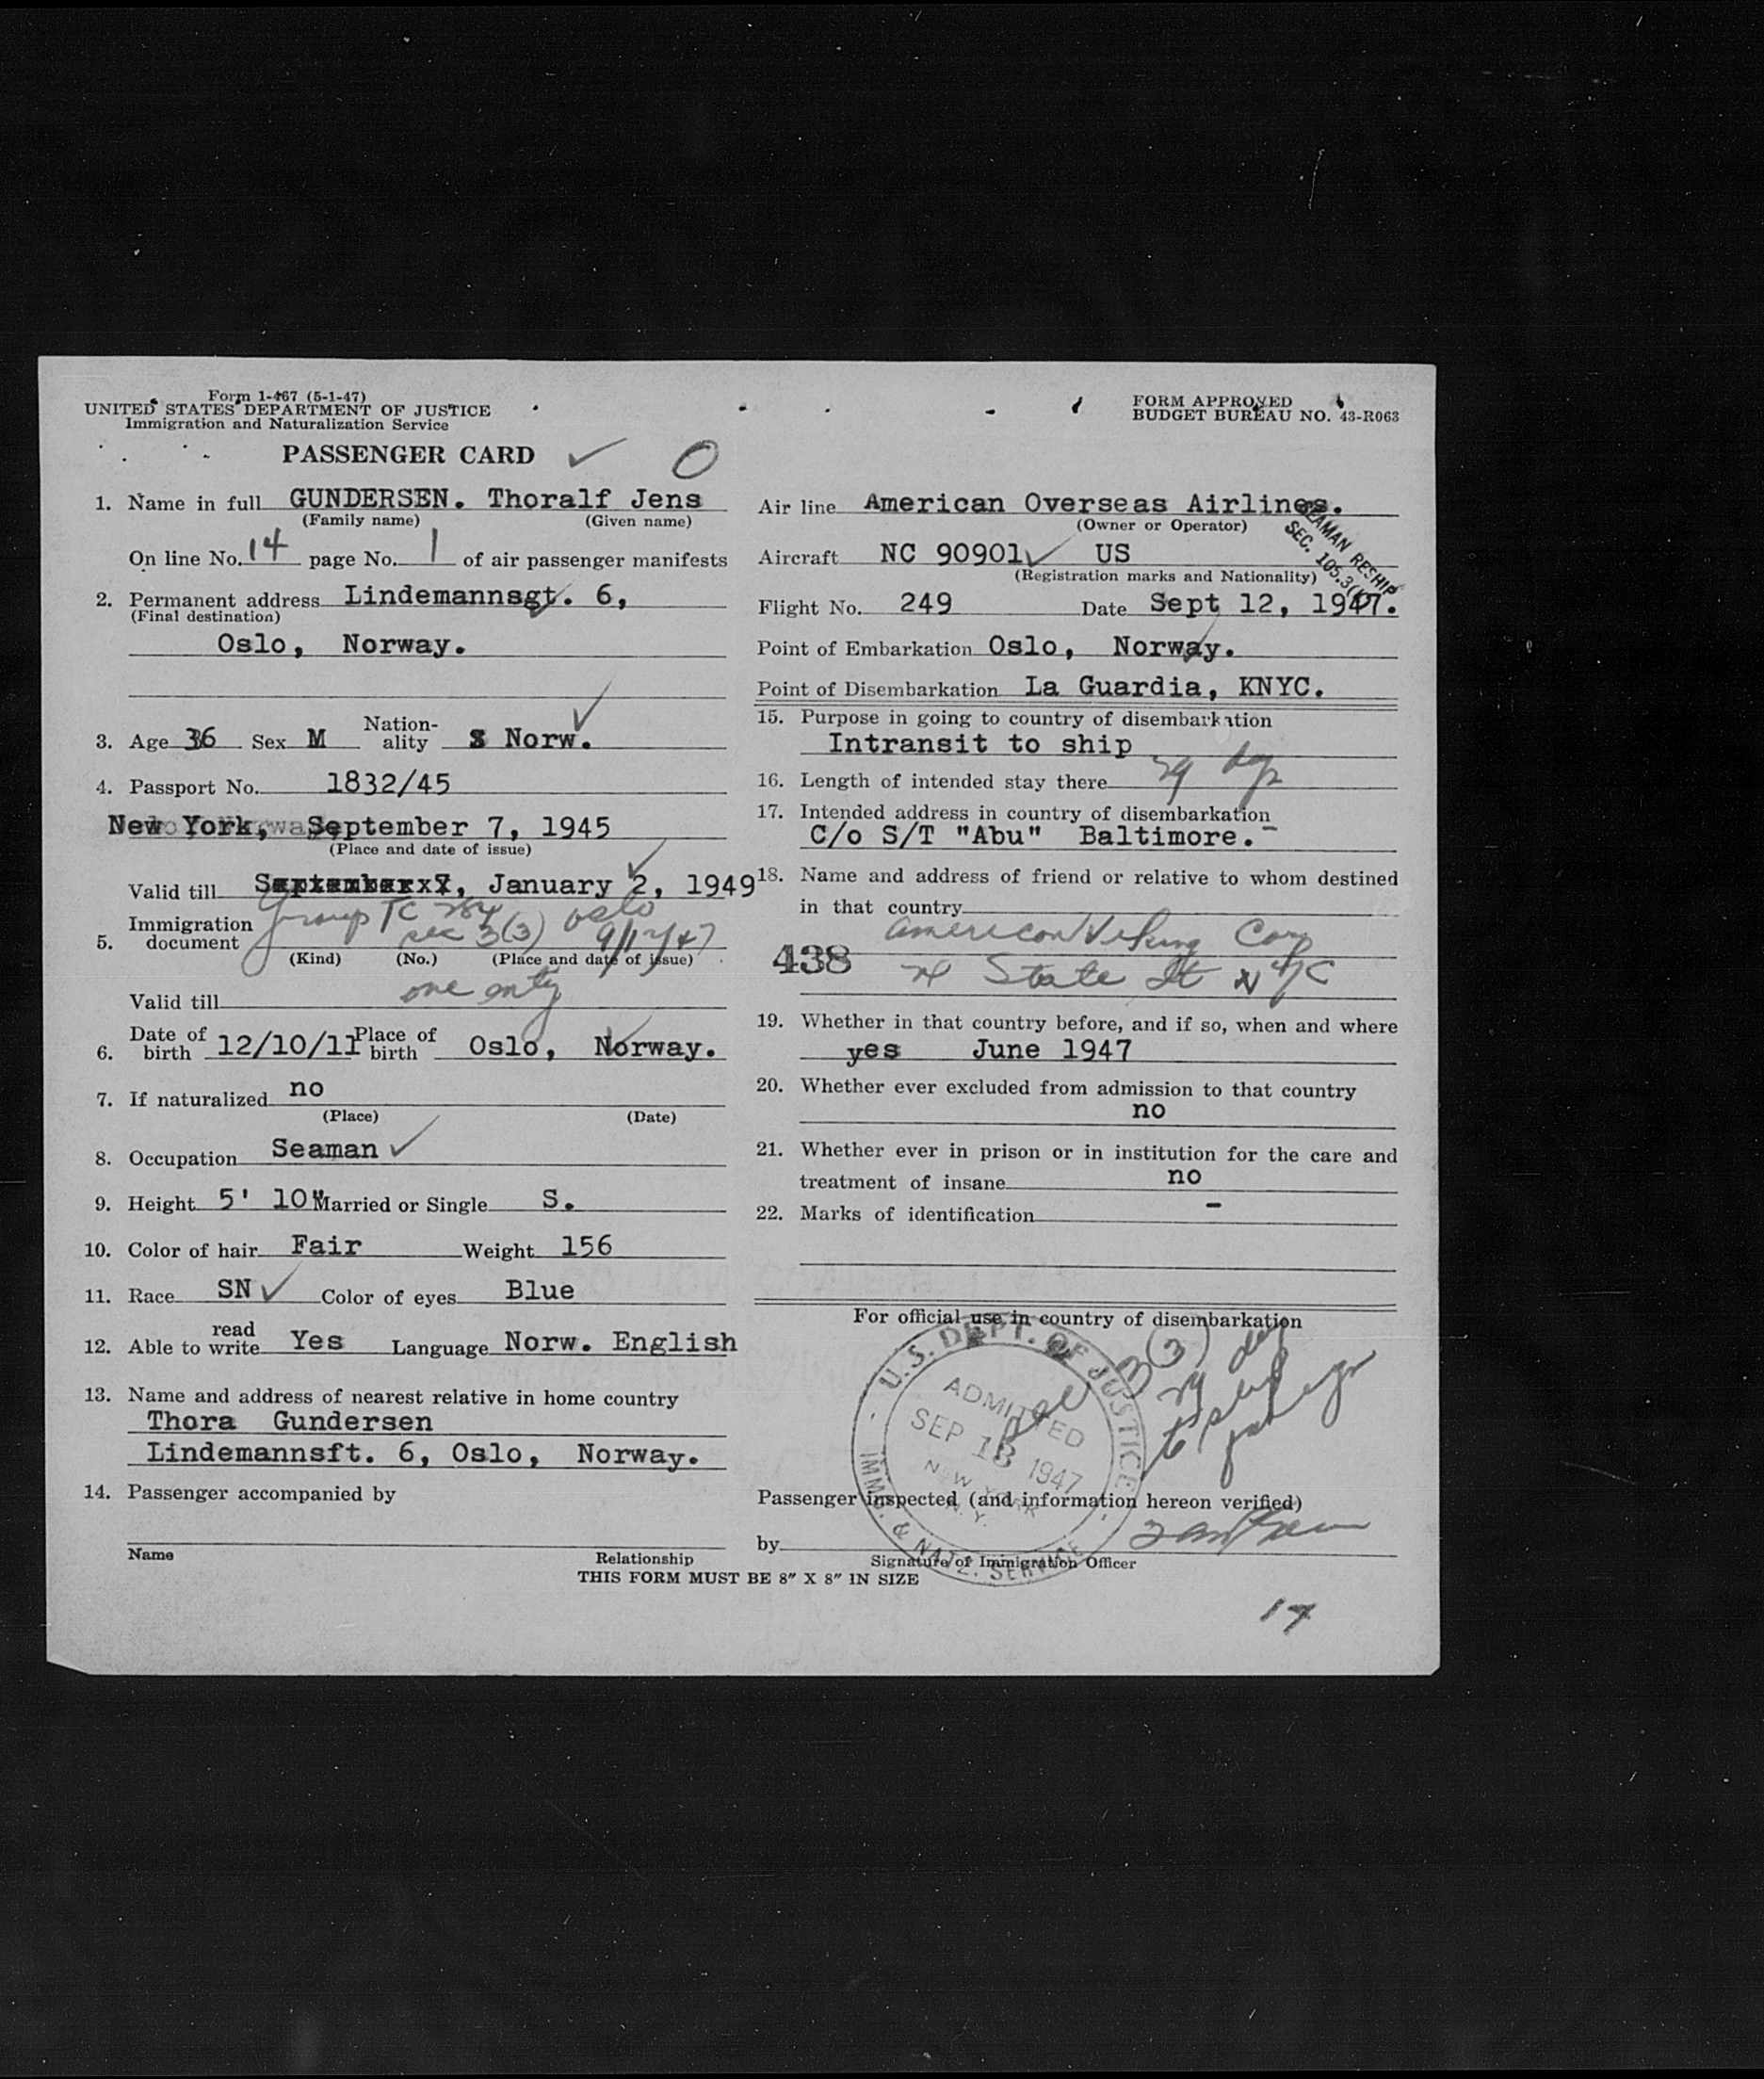 Form 1-467 (5-1-47)
UNITED STATES DEPARTMENT OF JUSTICE
Immigration and Naturalization Service
FORM APPROVED
BUDGET BUREAU NO. 43-R063
PASSENGER CARD
1. Name in full GUNDERSEN. Thoralf Jens
(Family name) (Given name)
On line No. 14 page No. 1 of air passenger manifests
2. Permanent address Lindemannsgt. 6,
(Final destination)
Oslo, Norway.
3. Age 36 Sex M Nation-ality Norw.
4. Passport No. 1832/45
New York, September 7, 1945
(Place and date of issue)
Valid till January 2, 1949
5. Immigration document Group TC 284 Oslo
sec 3(3) 9/12/47
(Kind) (No.) (Place and date of issue)
Valid till one entry
6. Date of birth 12/10/11 Place of birth Oslo, Norway.
7. If naturalized no
(Place) (Date)
8. Occupation Seaman
9. Height 5' 10" Married or Single S.
10. Color of hair Fair Weight 156
11. Race SN Color of eyes Blue
12. Able to read write Yes Language Norw. English
13. Name and address of nearest relative in home country
Thora Gundersen
Lindemannsft. 6, Oslo, Norway.
14. Passenger accompanied by
Name Relationship
THIS FORM MUST BE 8" X 8" IN SIZE
Air line American Overseas Airlines.
(Owner or Operator)
SEAMAN RESHIP
SEC. 105.3
Aircraft NC 90901 US
(Registration marks and Nationality)
Flight No. 249 Date Sept 12, 1947.
Point of Embarkation Oslo, Norway.
Point of Disembarkation La Guardia, KNYC.
15. Purpose in going to country of disembarkation
Intransit to ship
16. Length of intended stay there 29 dys
17. Intended address in country of disembarkation
C/o S/T "Abu" Baltimore.-
18. Name and address of friend or relative to whom destined
in that country
American Viking Corp
438 State St NYC
19. Whether in that country before, and if so, when and where
yes June 1947
20. Whether ever excluded from admission to that country
no
21. Whether ever in prison or in institution for the care and
treatment of insane no
22. Marks of identification -
For official use in country of disembarkation
U.S. DEPT. OF JUSTICE
ADMITTED
SEP 13 1947
NEW YORK
N. Y.
IMMI. & NATZ. SERVICE
sec 3(3)
29 days
Passenger inspected (and information hereon verified)
by
Signature of Immigration Officer
14